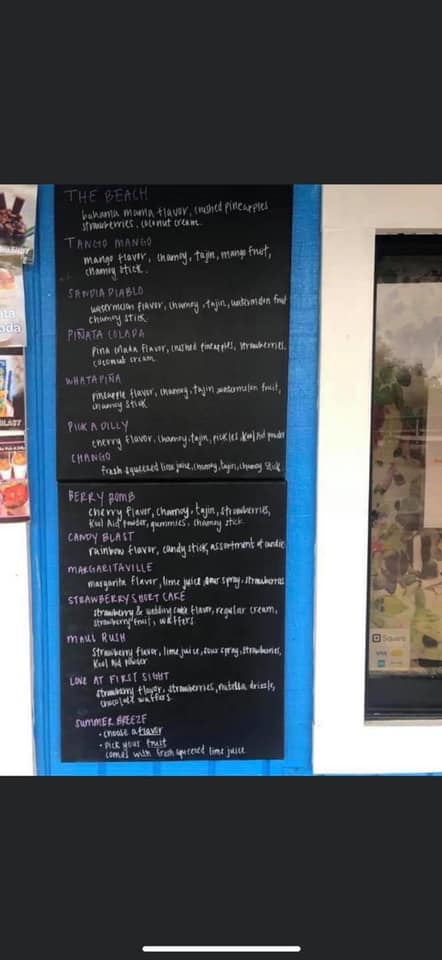 THE BEACH
bahama mama flavor, crushed pineapples
strawberries, coconut cream.
TANGO MANGO
mango flavor, chamoy, tajin, mango fruit,
chamoy stick.
SANDIA DIABLO
watermelon flavor, chamoy, tajin, watermelon fruit
chamoy stick.
PIÑATA COLADA
pina colada flavor, crushed pineapples, strawberries,
coconut cream.
WHATAPIÑA
pineapple flavor, chamoy, tajin, watermelon fruit,
chamoy stick
PICK A DILLY
cherry flavor, chamoy, tajin, pickles, kool Aid powder
CHANGO
fresh squeezed lime juice, chamoy, tajin, chamoy stick.
BERRY BOMB
cherry flavor, chamoy, tajin, strawberries,
Kool Aid powder, gummies, chamoy stick
CANDY BLAST
rainbow flavor, candy stick, assortment of candie
MARGARITAVILLE
margarita flavor, lime juice, sour spray, strawberries
STRAWBERRY SHORT CAKE
strawberry & wedding cake flavor, regular cream,
strawberry fruit, waffers.
MAUI RUSH
Strawberry flavor, lime juice, sour spray, strawberries,
Kool Aid powder
LOVE AT FIRST SIGHT
strawberry flavor, strawberries, nutella drizzle,
chocolate waffers.
SUMMER BREEZE
• choose a flavor
• pick your fruit
comes with fresh squeezed lime juice
Square
VISA